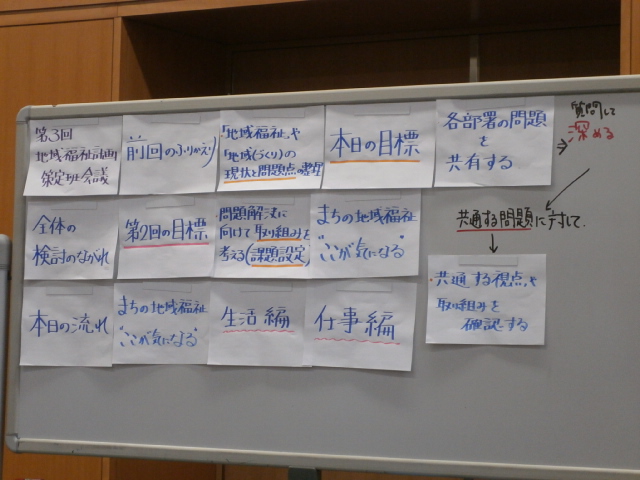 第3回
地域福祉計画
策定班会議
前回のふりかえり
「地域福祉」や
「地域(づくり)の
現状と問題点の整理
本日の目標
各部署の問題
を
共有する
質問して
⇒ 深める
全体の
検討のながれ
第2回の目標
問題解決に
向けて取り組みを
考える(課題設定)
まちの地域福祉
"ここが気になる"
共通する問題に対して.
本日の流れ
まちの地域福祉
"ここが気になる"
生活編
仕事編
・共通する視点や
取り組みを
確認する